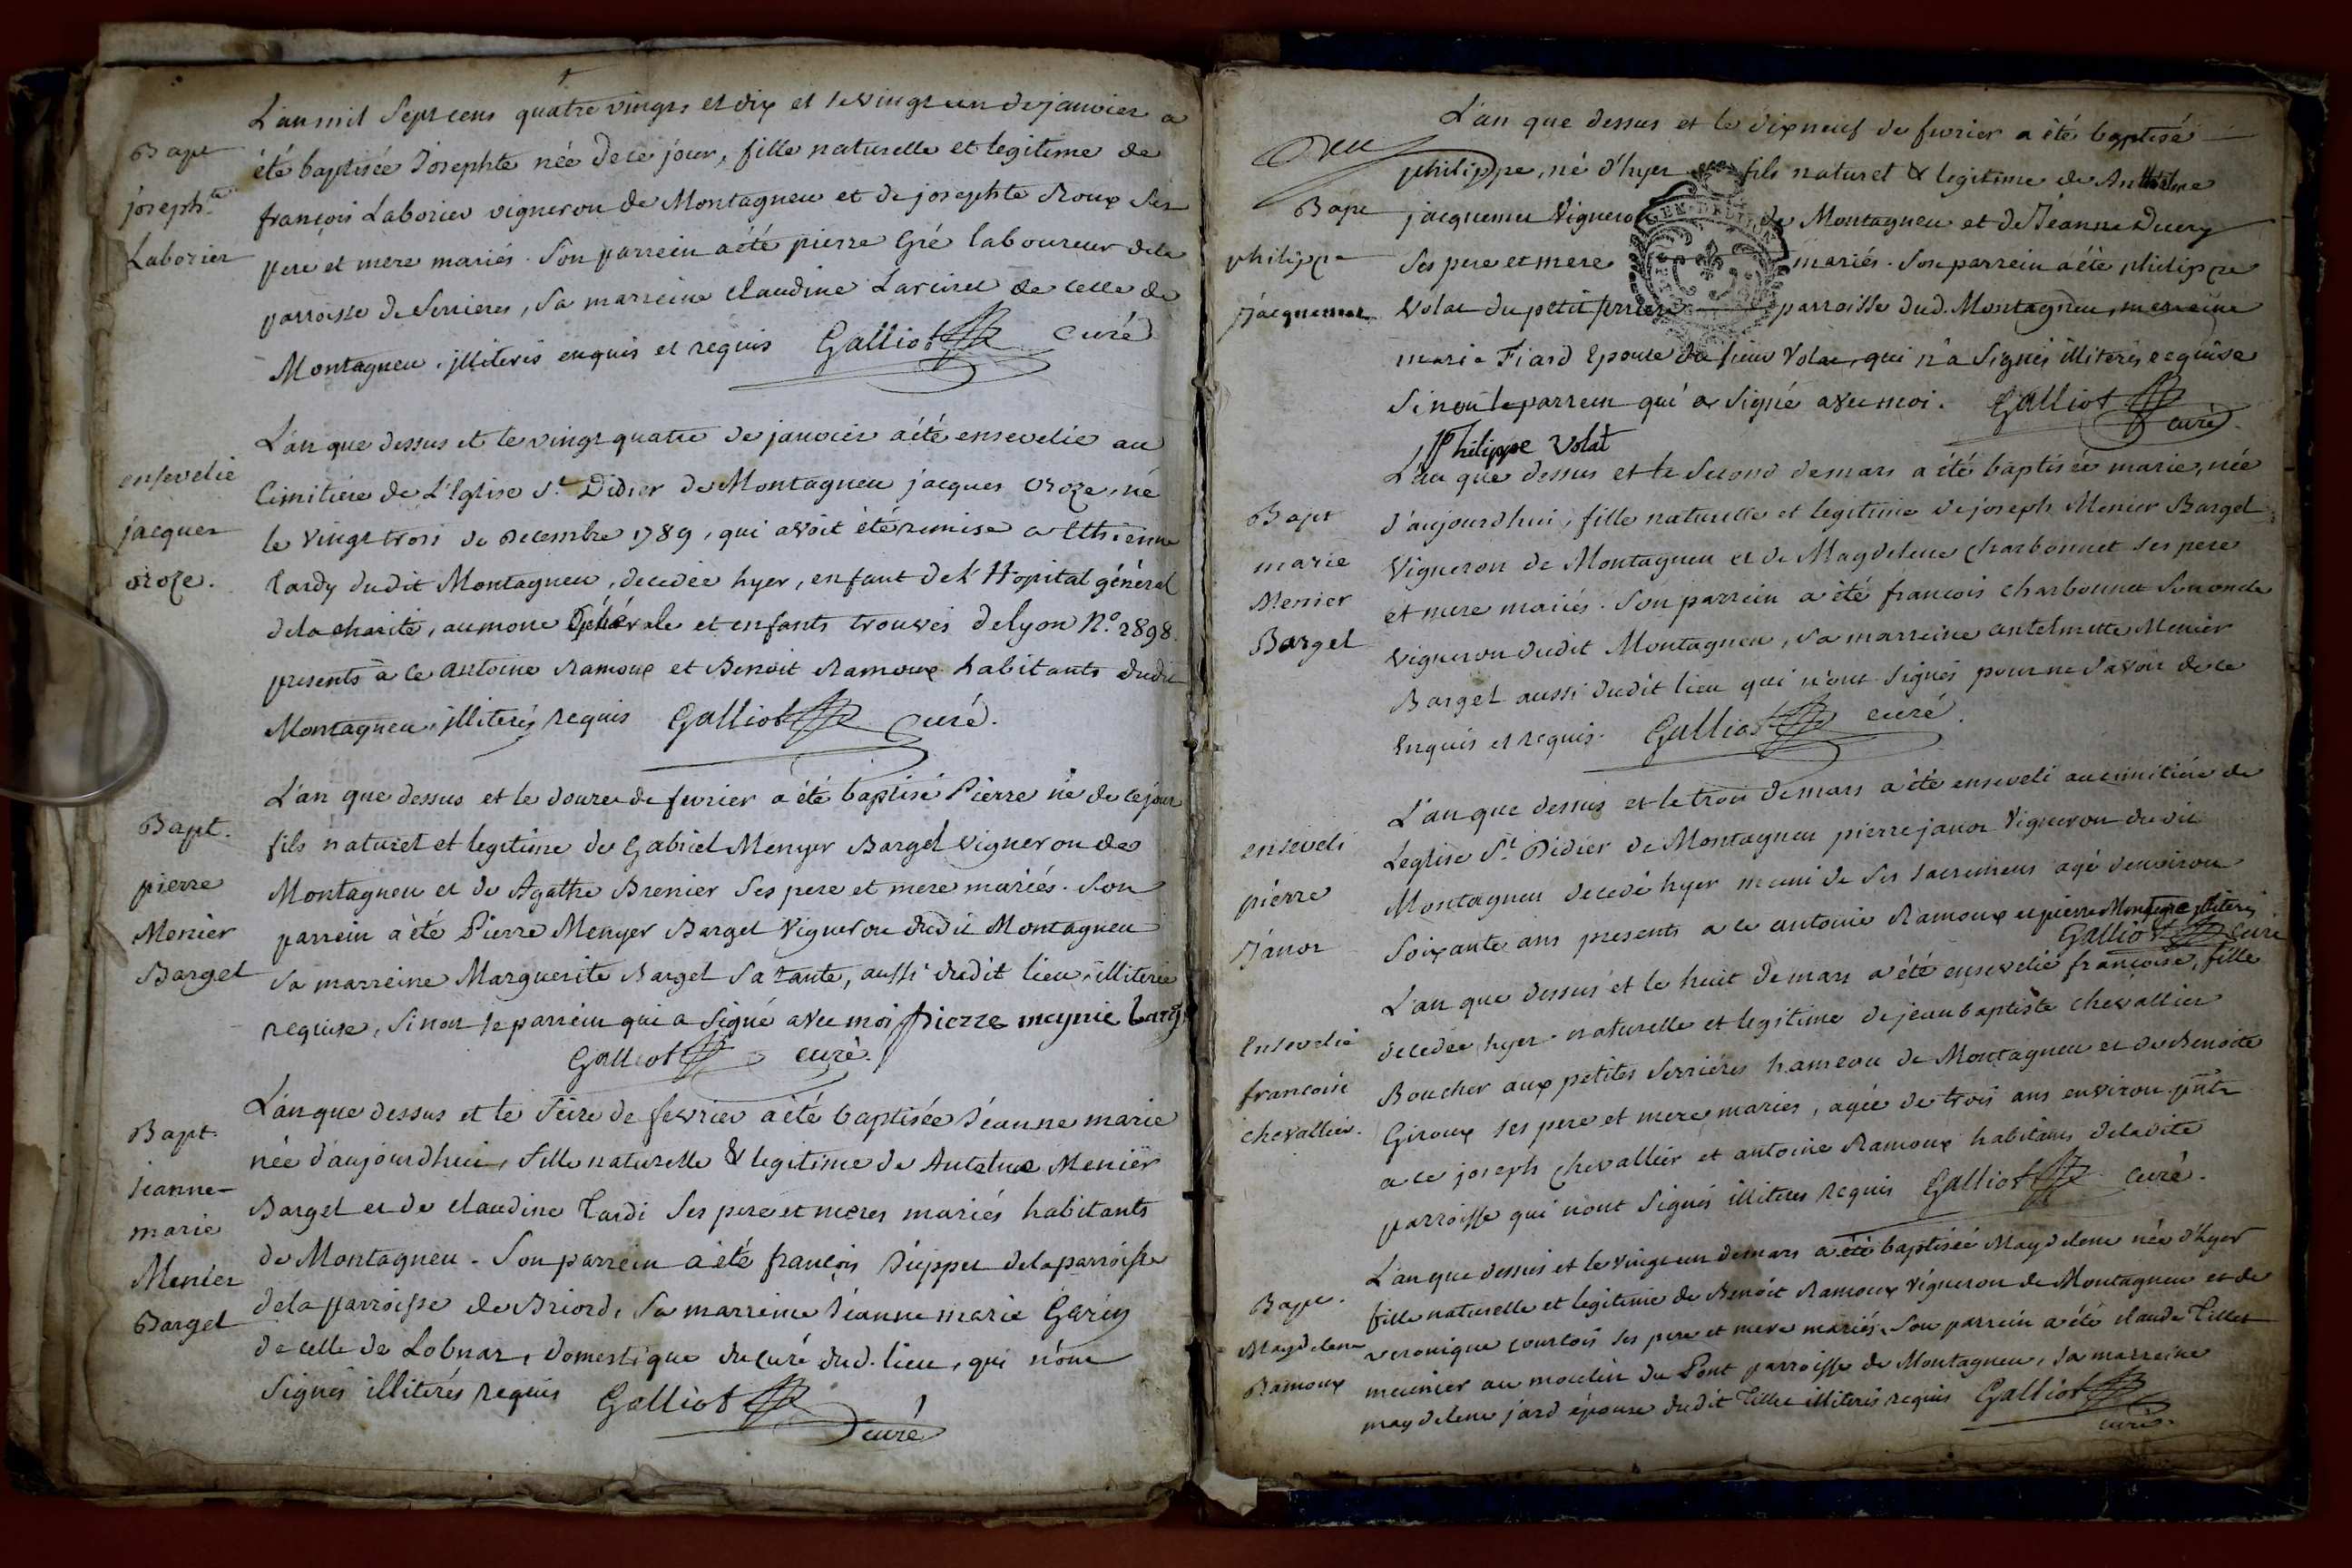 Bapt
joseph.te
Laborier
L'an mil Sept cens quatre vingts et dix et le vingt un de janvier a
été baptisée Josephte née de ce jour, fille naturelle et legitime de
françois Laborier vigneron de Montagneu et de josephte Roux Ses
pere et mere mariés. Son parrein a été pierre Gré laboureur de la
parroisse de Serrieres, Sa marreine claudine de celle de
Montagneu. illiterés enquis et requis Galliot curé
ensevelie
jacques
oroze.
L'an que dessus et le vingt quatre de janvier a été ensevelie au
Cimitière de L'Eglise St Didier de Montagneu jacques oroze, né
le vingt trois de Decembre 1789, qui avoit été remise a Ethienne
Tardy dudit Montagneu, decedée hyer, enfant de L'Hopital général
de la charité, aumone générale et enfants trouvés de lyon N.o 2898.
presents a ce antoine Ramoux et Benoit Ramoux habitants dudit
Montagneu, illiterés requis Galliot curé.
Bapt.
pierre
Menier
Bargel
L'an que dessus et le douze de fevrier a été baptisé Pierre né de ce jour
fils naturel et legitime de Gabriel Menyer Bargel vigneron de
Montagneu et de Agathe Brenier Ses pere et mere mariés. Son
parrein a été Pierre Menyer Bargel Vigneron dudit Montagneu
Sa marreine Marguerite Bargel Sa tante, aussi dudit lieu, illiterée
requise, Sinon le parrein qui a Signé avec moi pierre meynie barg
Galliot curé.
Bapt.
Jeanne-
marie
Menier
Bargel
L'an que dessus et le Seize de fevrier a été baptisée Jeanne marie
née d'aujourdhui, fille naturelle & legitime de Antelme Menier
Bargel et de claudine Tardi Ses pere et meres mariés habitants
de Montagneu. Son parrein a été françois de la parroisse
de la parroisse de Briord, Sa marreine Jeanne marie Garin
de celle de Lohnaz, Domestique du curé dud. lieu, qui n'ont
Signés illiterés requis Galliot
curé
Bapt
philippe
Jacquemet
L'an que dessus et le dix neuf de fevrier a été baptisé
philippe, né d'hyer fils naturel & legitime de Anthelme
jacquemet Vigneron de Montagneu et de Jeanne Ducry
Ses pere et mere mariés. Son parrein a été philippe
Volat du petit parroisse dud. Montagneu, marreine
marie Fiard Epouse du Volat, qui n'a Signés illiterés requise
Sinon le parrein qui a Signé avec moi. Galliot
curé.
Philippe Volat
Bapt
marie
Menier
Bargel
L'an que dessus et le Second de mars a été baptisée marie, née
d'aujourdhui, fille naturelle et legitime de joseph Menier Bargel
Vigneron de Montagneu et de Magdelene Charbonnet Ses pere
et mere mariés. Son parrein a été francois charbonnet Son oncle
vigneron dudit Montagneu, Sa marreine antelmette Menier
Bargel aussi dudit lieu qui n'ont Signés pour ne Savoir de ce
Enquis et requis. Galliot curé.
enseveli
pierre
Janor
L'an que dessus et le trois de mars a été enseveli au cimitière de
Leglise St Didier de Montagneu pierre janor Vigneron dudit
Montagneu decedé hyer muni de Ses Sacremens agé denviron
Soixante ans presents a ce antoine Ramoux et pierre illiterés
Galliot curé
Ensevelie
francoise
chevallier.
L'an que dessus et le huit de mars a été ensevelie françoise, fille
decedée hyer naturelle et legitime de jean baptiste chevallier
Boucher aux petites Serrieres hameau de Montagneu et de Benoite
Giroux Ses pere et mere mariés, agée de trois ans environ pnts
a ce joseph chevallier et antoine Ramoux habitans de ladite
parroisse qui n'ont Signés illiterés requis Galliot curé.
Bapt.
Magdelene
Ramoux
L'an que dessus et le vingt un de mars a été baptisée Magdelene née d'hyer
fille naturelle et legitime de Benoit Ramoux Vigneron de Montagneu et de
veronique courtois Ses pere et mere mariés. Son parrein a été claude Tillet
meunier au moulin du Pont parroisse de Montagneu, Sa marreine
magdelene jard épouse dudit Tillet illiterés requis Galliot
curé.